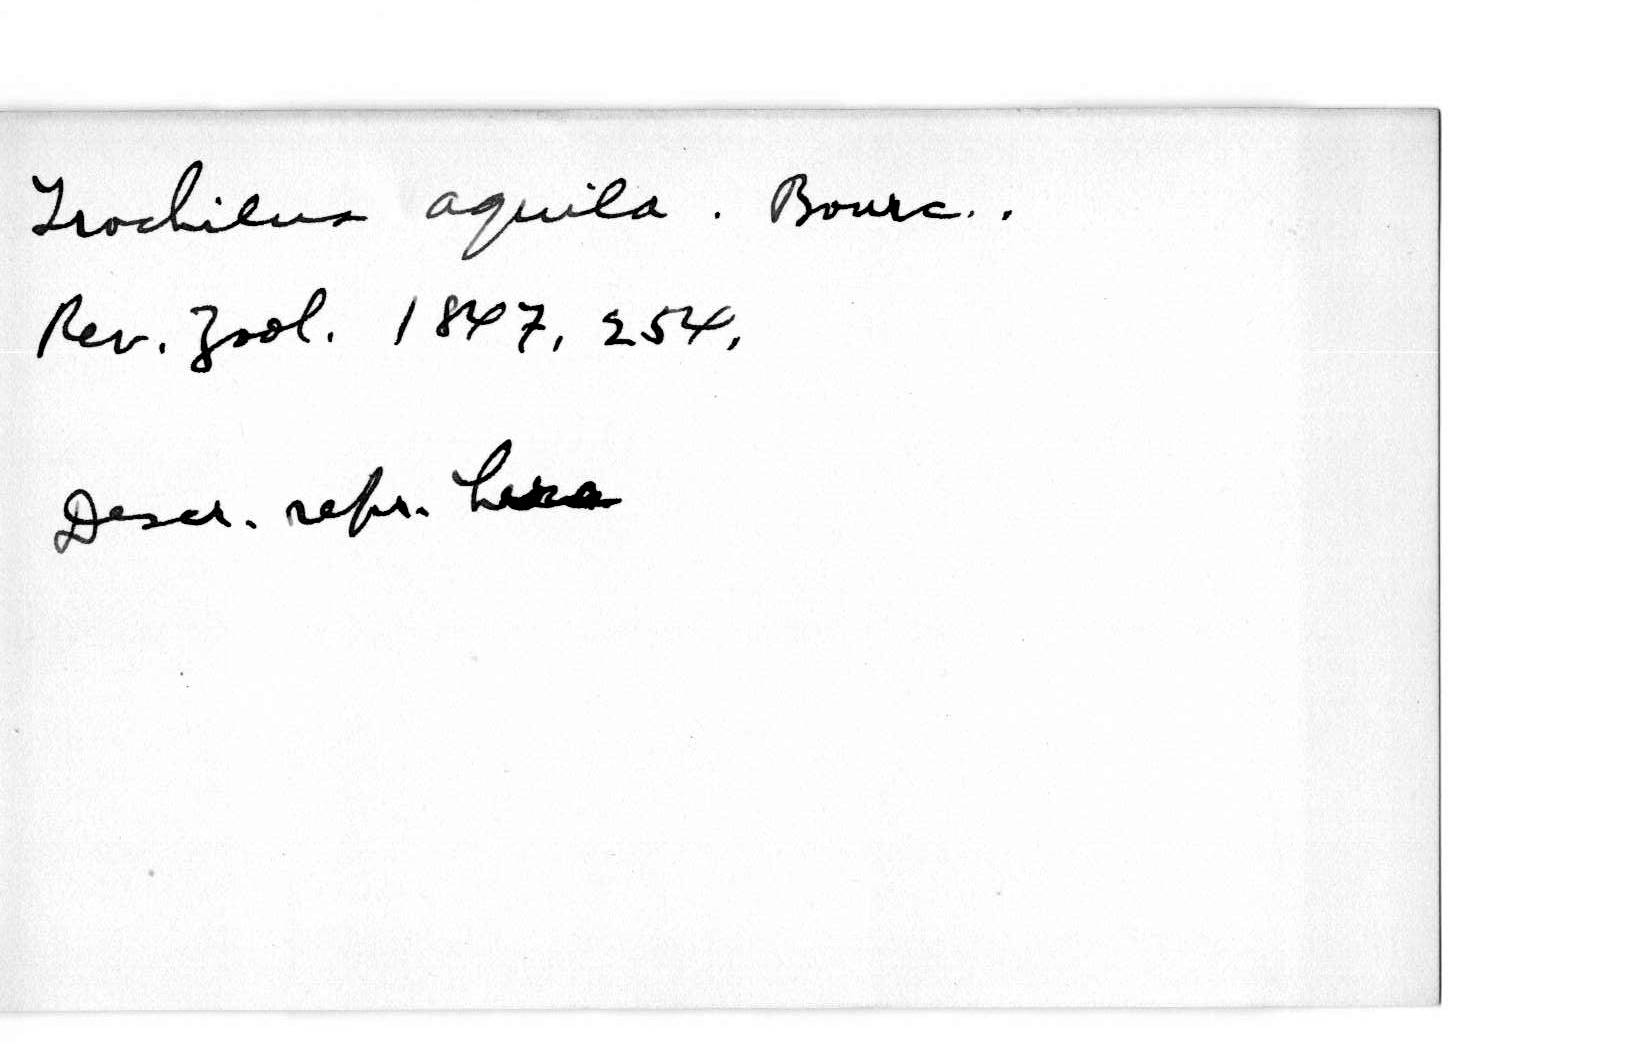 Trochilus aquila. Bourc..
Rev. Zool. 1847, 254,
Descr. repr. here